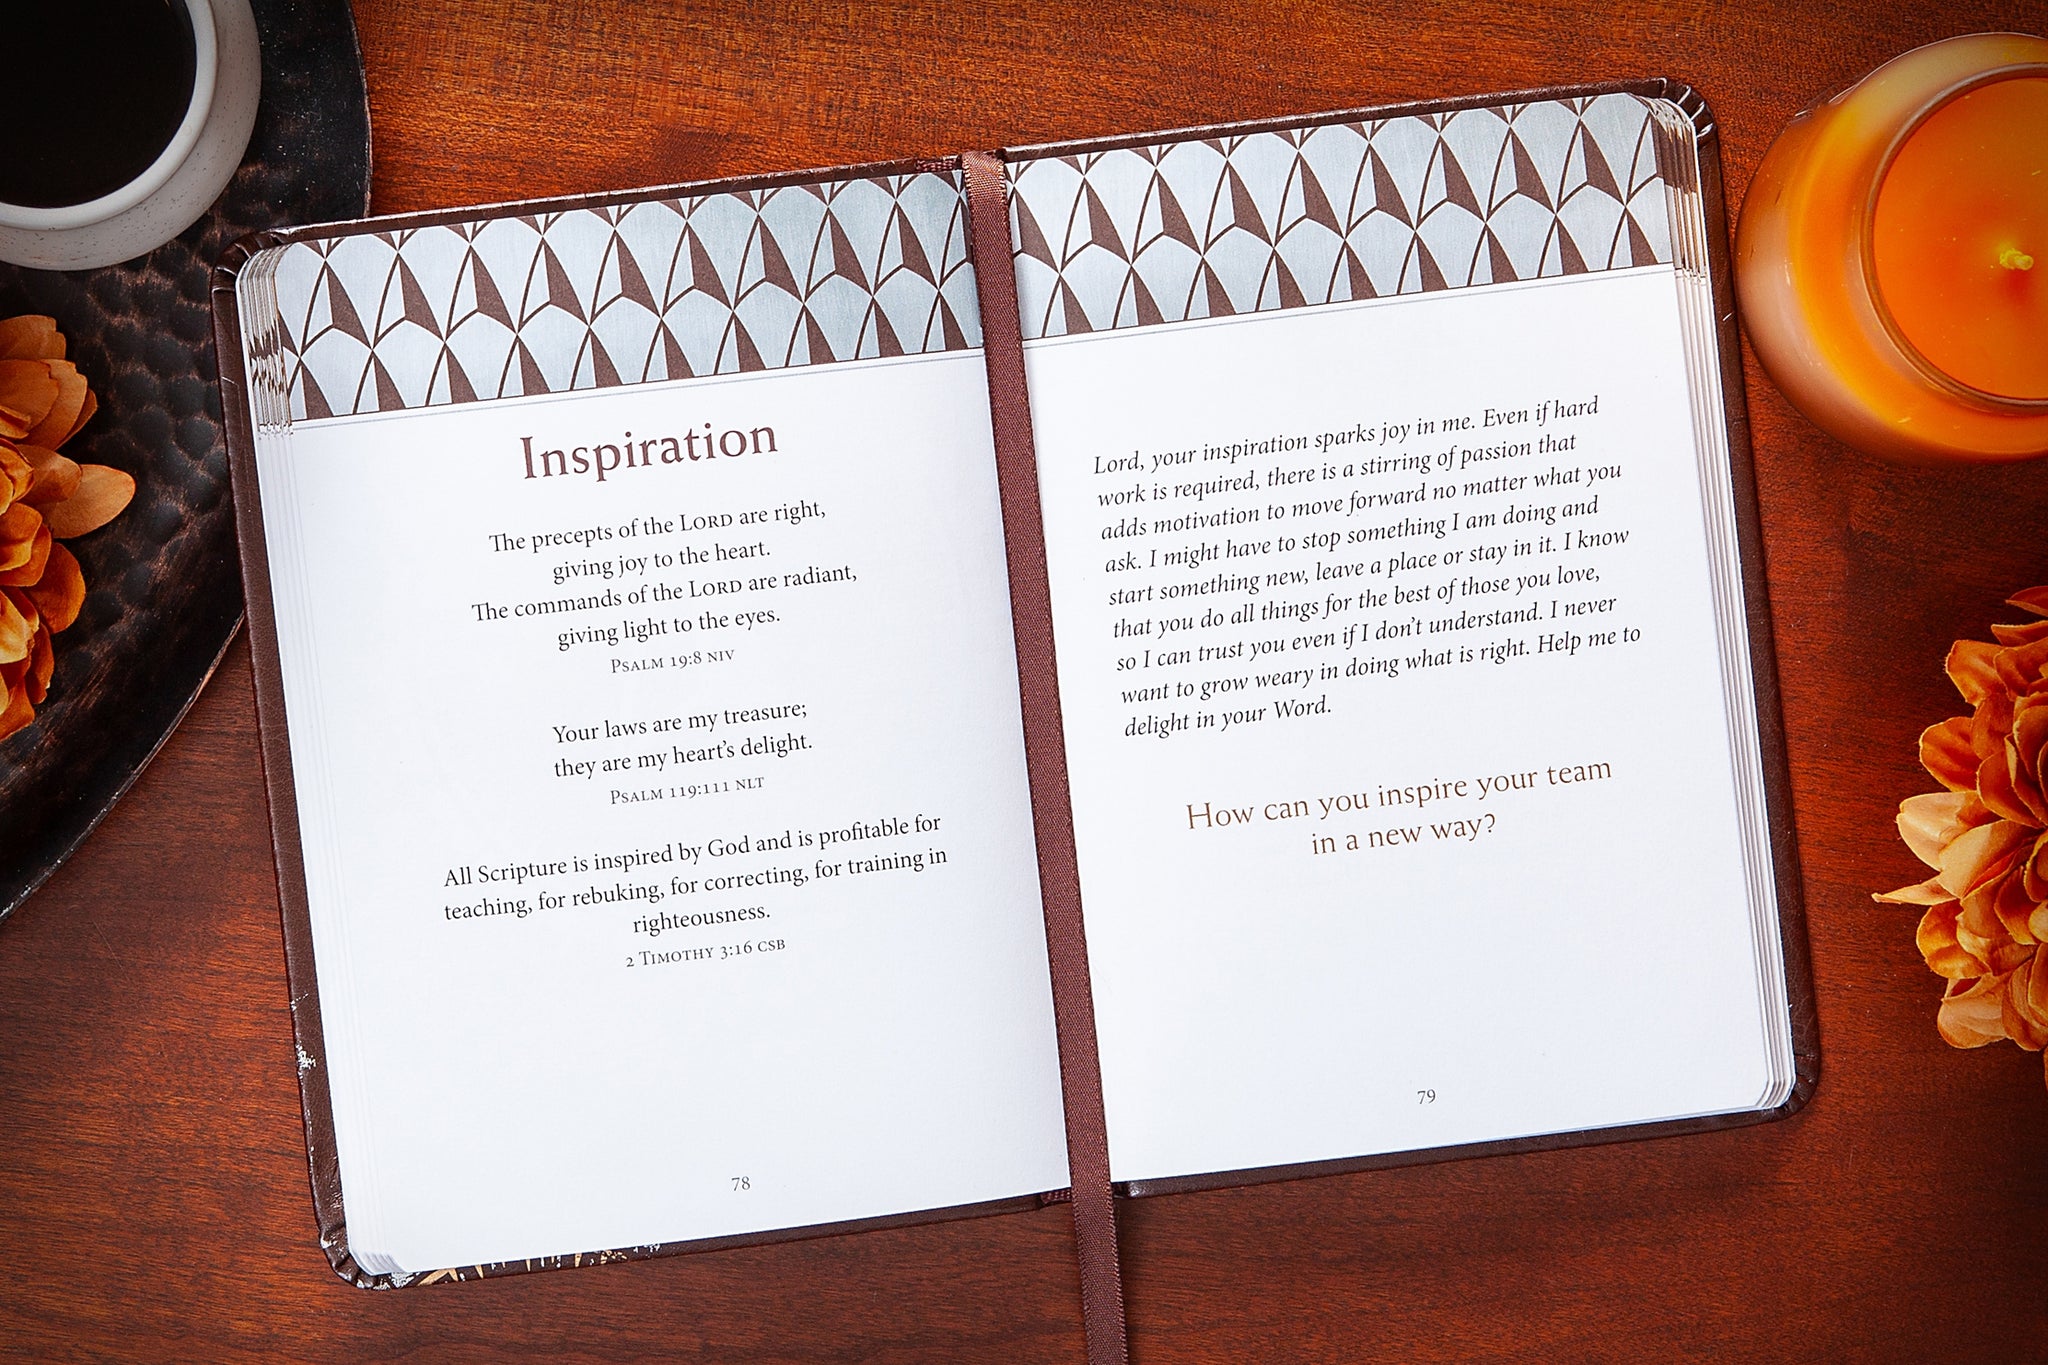 Inspiration
The precepts of the LORD are right,
giving joy to the heart.
The commands of the LORD are radiant,
giving light to the eyes.
PSALM 19:8 NIV
Your laws are my treasure;
they are my heart's delight.
PSALM 119:111 NLT
All Scripture is inspired by God and is profitable for
teaching, for rebuking, for correcting, for training in
righteousness.
2 TIMOTHY 3:16 CSB
78
Lord, your inspiration sparks joy in me. Even if hard
work is required, there is a stirring of passion that
adds motivation to move forward no matter what you
ask. I might have to stop something I am doing and
start something new, leave a place or stay in it. I know
that you do all things for the best of those you love,
so I can trust you even if I don't understand. I never
want to grow weary in doing what is right. Help me to
delight in your Word.
How can you inspire your team
in a new way?
79